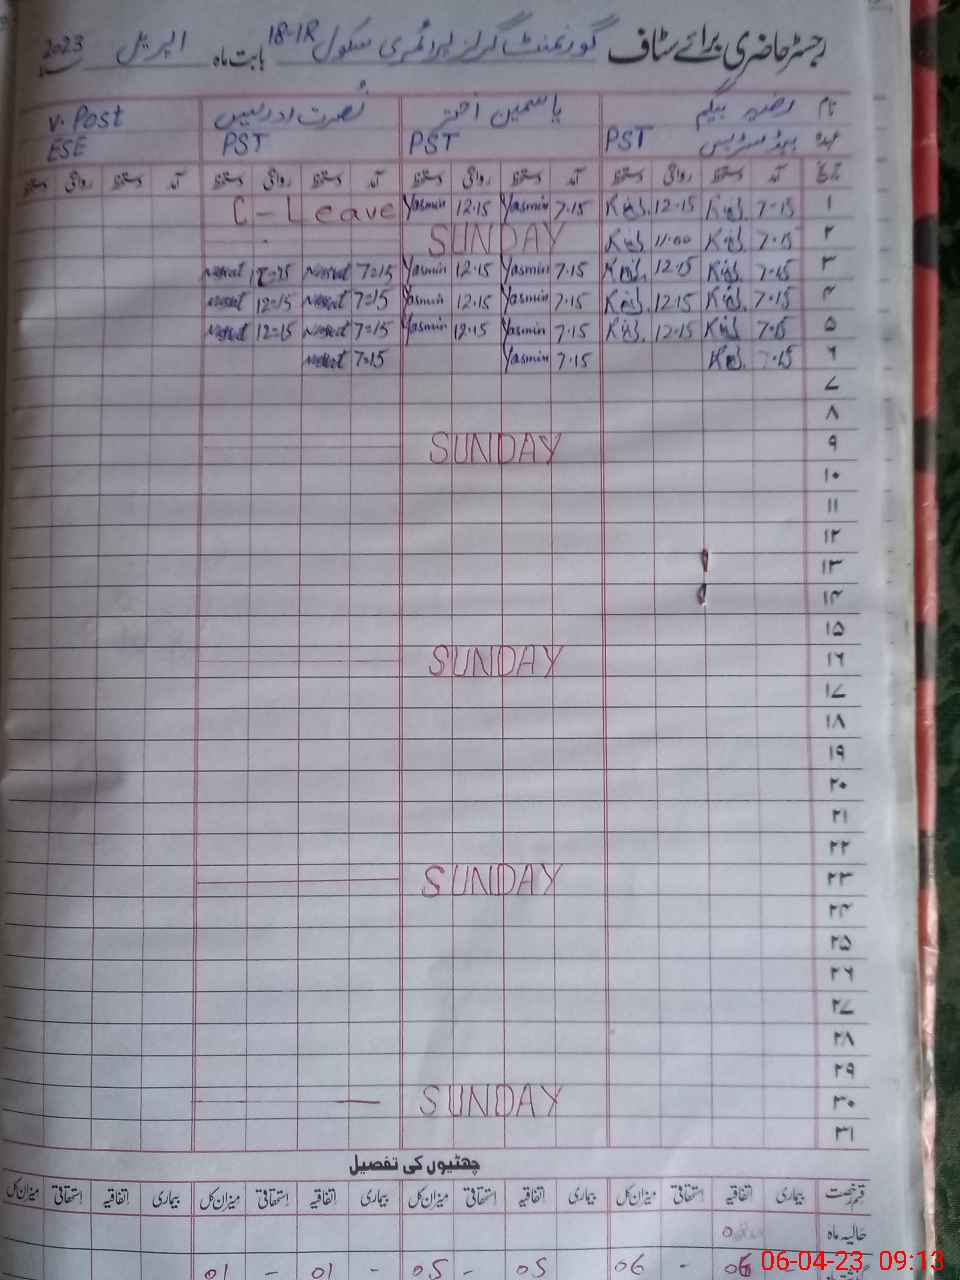 رجسٹر حاضری برائے سٹاف گورنمنٹ گرلز پرائمری سکول 18-1R بابت ماہ اپریل 2023
نام رضیہ بیگم یاسمین اختر نصرت ادریس V. Post
عہدہ ہیڈ مسٹریس PST PST PST ESE
تاریخ آمد دستخط روانگی دستخط آمد دستخط روانگی دستخط آمد دستخط روانگی دستخط آمد دستخط روانگی دستخط
۱ 7-15 12-15 7.15 Yasmin 12.15 Yasmin C - Leave
۲ 7.15 11.00 SUNDAY
۳ 7.15 12.15 7.15 Yasmin 12.15 Yasmin 7=15 Nusrat 12=15 Nusrat
۴ 7.15 12.15 7.15 Yasmin 12.15 Yasmin 7=15 Nusrat 12=15 Nusrat
۵ 7.15 12.15 7.15 Yasmin 12.15 Yasmin 7=15 Nusrat 12=15 Nusrat
۶ 7.15 7.15 Yasmin 7=15 Nusrat
۷
۸
۹ SUNDAY
۱۰
۱۱
۱۲
۱۳
۱۴
۱۵
۱۶ SUNDAY
۱۷
۱۸
۱۹
۲۰
۲۱
۲۲
۲۳ SUNDAY
۲۴
۲۵
۲۶
۲۷
۲۸
۲۹
۳۰ SUNDAY
۳۱
چھٹیوں کی تفصیل
قسم رخصت بیماری اتفاقیہ استحقاقی میزان کل بیماری اتفاقیہ استحقاقی میزان کل بیماری اتفاقیہ استحقاقی میزان کل بیماری اتفاقیہ استحقاقی میزان کل
حالیہ ماہ
- 06 - 06 - 05 - 05 - 01 - 01
06-04-23 09:13